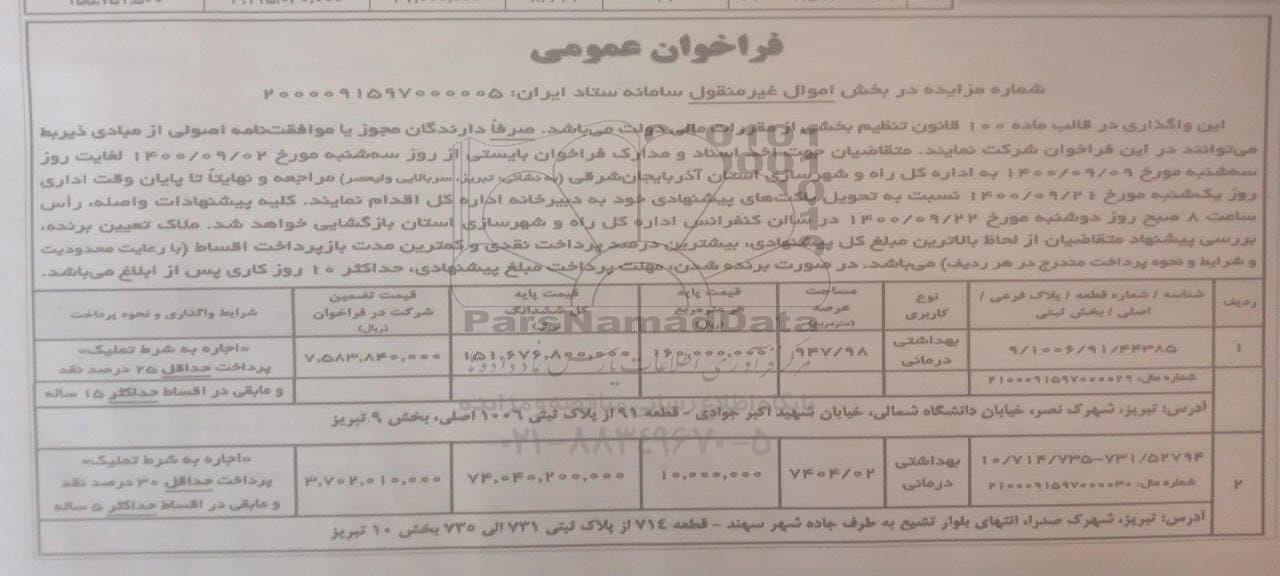 فراخوان عمومی
شماره مزایده در بخش اموال غیرمنقول سامانه ستاد ایران: ۲۰۰۰۰۹۱۵۹۷۰۰۰۰۰۵
این واگذاری در قالب ماده ۱۰۰ قانون تنظیم بخشی از مقررات مالی دولت می‌باشد. صرفاً دارندگان مجوز یا موافقت‌نامه اصولی از مبادی ذیربط
می‌توانند در این فراخوان شرکت نمایند. متقاضیان جهت اخذ اسناد و مدارک فراخوان بایستی از روز سه‌شنبه مورخ ۱۴۰۰/۰۹/۰۲ لغایت روز
سه‌شنبه مورخ ۱۴۰۰/۰۹/۰۹ به اداره کل راه و شهرسازی استان آذربایجان‌شرقی (به نشانی: تبریز، سربالایی ولیعصر) مراجعه و نهایتاً تا پایان وقت اداری
روز یک‌شنبه مورخ ۱۴۰۰/۰۹/۲۱ نسبت به تحویل پاکت‌های پیشنهادی خود به دبیرخانه اداره کل اقدام نمایند. کلیه پیشنهادات واصله، رأس
ساعت ۸ صبح روز دوشنبه مورخ ۱۴۰۰/۰۹/۲۲ در سالن کنفرانس اداره کل راه و شهرسازی استان بازگشایی خواهد شد. ملاک تعیین برنده،
بررسی پیشنهاد متقاضیان از لحاظ بالاترین مبلغ کل پیشنهادی، بیشترین درصد پرداخت نقدی و کمترین مدت بازپرداخت اقساط (با رعایت محدودیت
و شرایط و نحوه پرداخت مندرج در هر ردیف) می‌باشد. در صورت برنده شدن، مهلت پرداخت مبلغ پیشنهادی، حداکثر ۱۰ روز کاری پس از ابلاغ می‌باشد.
ردیف
شناسه / شماره قطعه / پلاک فرعی /
اصلی / بخش ثبتی
نوع
کاربری
مساحت
عرصه
(مترمربع)
قیمت پایه
هر مترمربع
(ریال)
قیمت پایه
کل ششدانگ
(ریال)
قیمت تضمین
شرکت در فراخوان
(ریال)
شرایط واگذاری و نحوه پرداخت
۱
۹/۱۰۰۶/۹۱/۴۴۳۸۵
شماره مال: ۲۱۰۰۰۹۱۵۹۷۰۰۰۰۲۹
بهداشتی
درمانی
۹۴۷/۹۸
۱۶۰,۰۰۰,۰۰۰
۱۵۱,۶۷۶,۸۰۰,۰۰۰
۷,۵۸۳,۸۴۰,۰۰۰
«اجاره به شرط تملیک»
پرداخت حداقل ۲۵ درصد نقد
و مابقی در اقساط حداکثر ۱۵ ساله
آدرس: تبریز، شهرک نصر، خیابان دانشگاه شمالی، خیابان شهید اکبر جوادی - قطعه ۹۱ از پلاک ثبتی ۱۰۰۶ اصلی، بخش ۹ تبریز
۲
۱۰/۷۱۴/۷۳۵-۷۳۱/۵۲۷۹۴
شماره مال: ۲۱۰۰۰۹۱۵۹۷۰۰۰۰۳۰
بهداشتی
درمانی
۷۴۰۴/۰۲
۱۰,۰۰۰,۰۰۰
۷۴,۰۴۰,۲۰۰,۰۰۰
۳,۷۰۲,۰۱۰,۰۰۰
«اجاره به شرط تملیک»
پرداخت حداقل ۳۰ درصد نقد
و مابقی در اقساط حداکثر ۵ ساله
آدرس: تبریز، شهرک صدرا، انتهای بلوار تشیع به طرف جاده شهر سهند - قطعه ۷۱۴ از پلاک ثبتی ۷۳۱ الی ۷۳۵ بخش ۱۰ تبریز
ParsNamadData
مرکز فرآوری اطلاعات پارس نماد داده ها
پایگاه اطلاع رسانی مناقصه و مزایده
۰۲۱-۸۸۳۴۹۶۷۰-۵